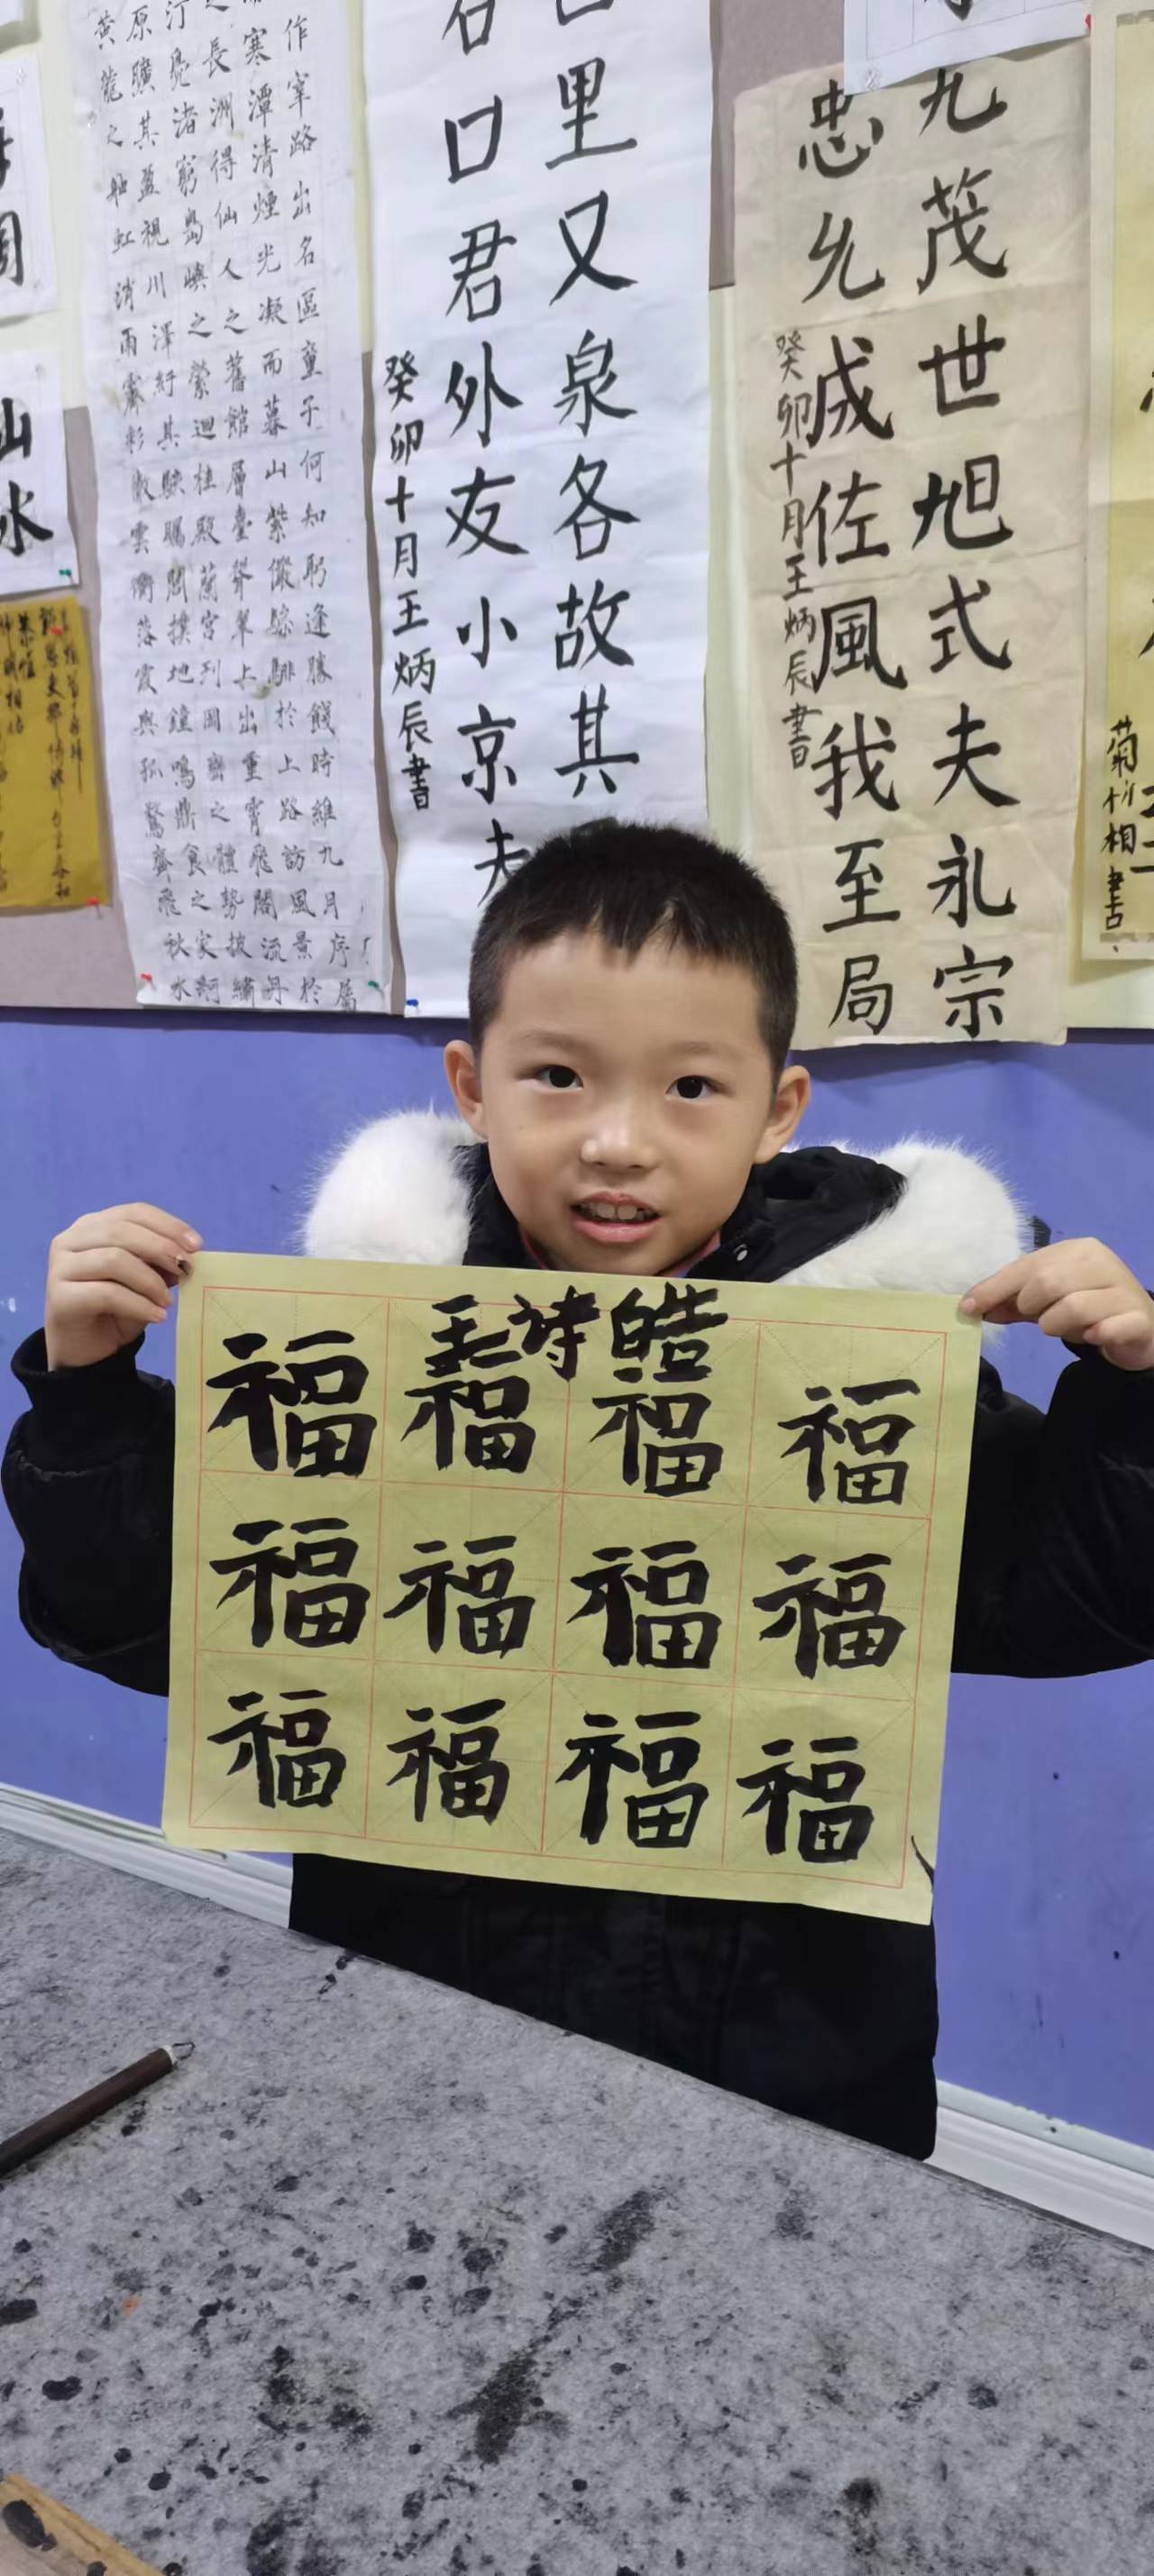 九茂世旭式夫永宗
忠允成佐風我至局
癸卯十月王炳辰書
里又泉各故其
口君外友小京夫
癸卯十月王炳辰書
作宰路出名區童子何知躬逢勝餞時維九月序屬
寒潭清煙光凝而暮山紫儼驂騑於上路訪風景於
長洲得仙人之舊館層臺聳翠上出重霄飛閣流丹
汀鳧渚窮島嶼之縈迴桂殿蘭宮列岡巒之體勢披繡
原曠其盈視川澤紆其駭矚閭撲地鐘鳴鼎食之家舸
黃龍之舳虹消雨霽彩徹雲衢落霞與孤鶩齊飛秋水
山水
王詩皓
福福福福
福福福福
福福福福